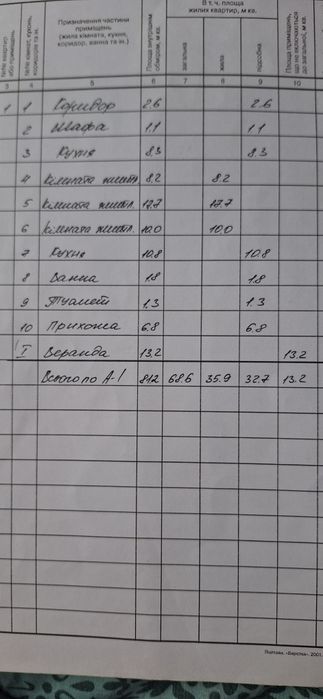 №№ квартир або приміщень
№№ кімнат, кухонь, коридорів та ін.
Призначення частини приміщень (жила кімната, кухня, коридор, ванна та ін.)
Площа внутрішнім обміром, м кв.
В т. ч. площа жилих квартир, м кв.
загальна
жила
підсобна
Площа приміщень, що не включаються до загальної, м кв.
3 4 5 6 7 8 9 10
1 1 Коридор 2.6 2.6
2 Шафа 1.1 1.1
3 Кухня 8.3 8.3
4 Кімната житл. 8.2 8.2
5 Кімната житл. 17.7 17.7
6 Кімната житл. 10.0 10.0
7 Кухня 10.8 10.8
8 Ванна 1.8 1.8
9 Туалет 1.3 1.3
10 Прихожа 6.8 6.8
I Веранда 13.2 13.2
Всього по А-I 81.2 68.6 35.9 32.7 13.2